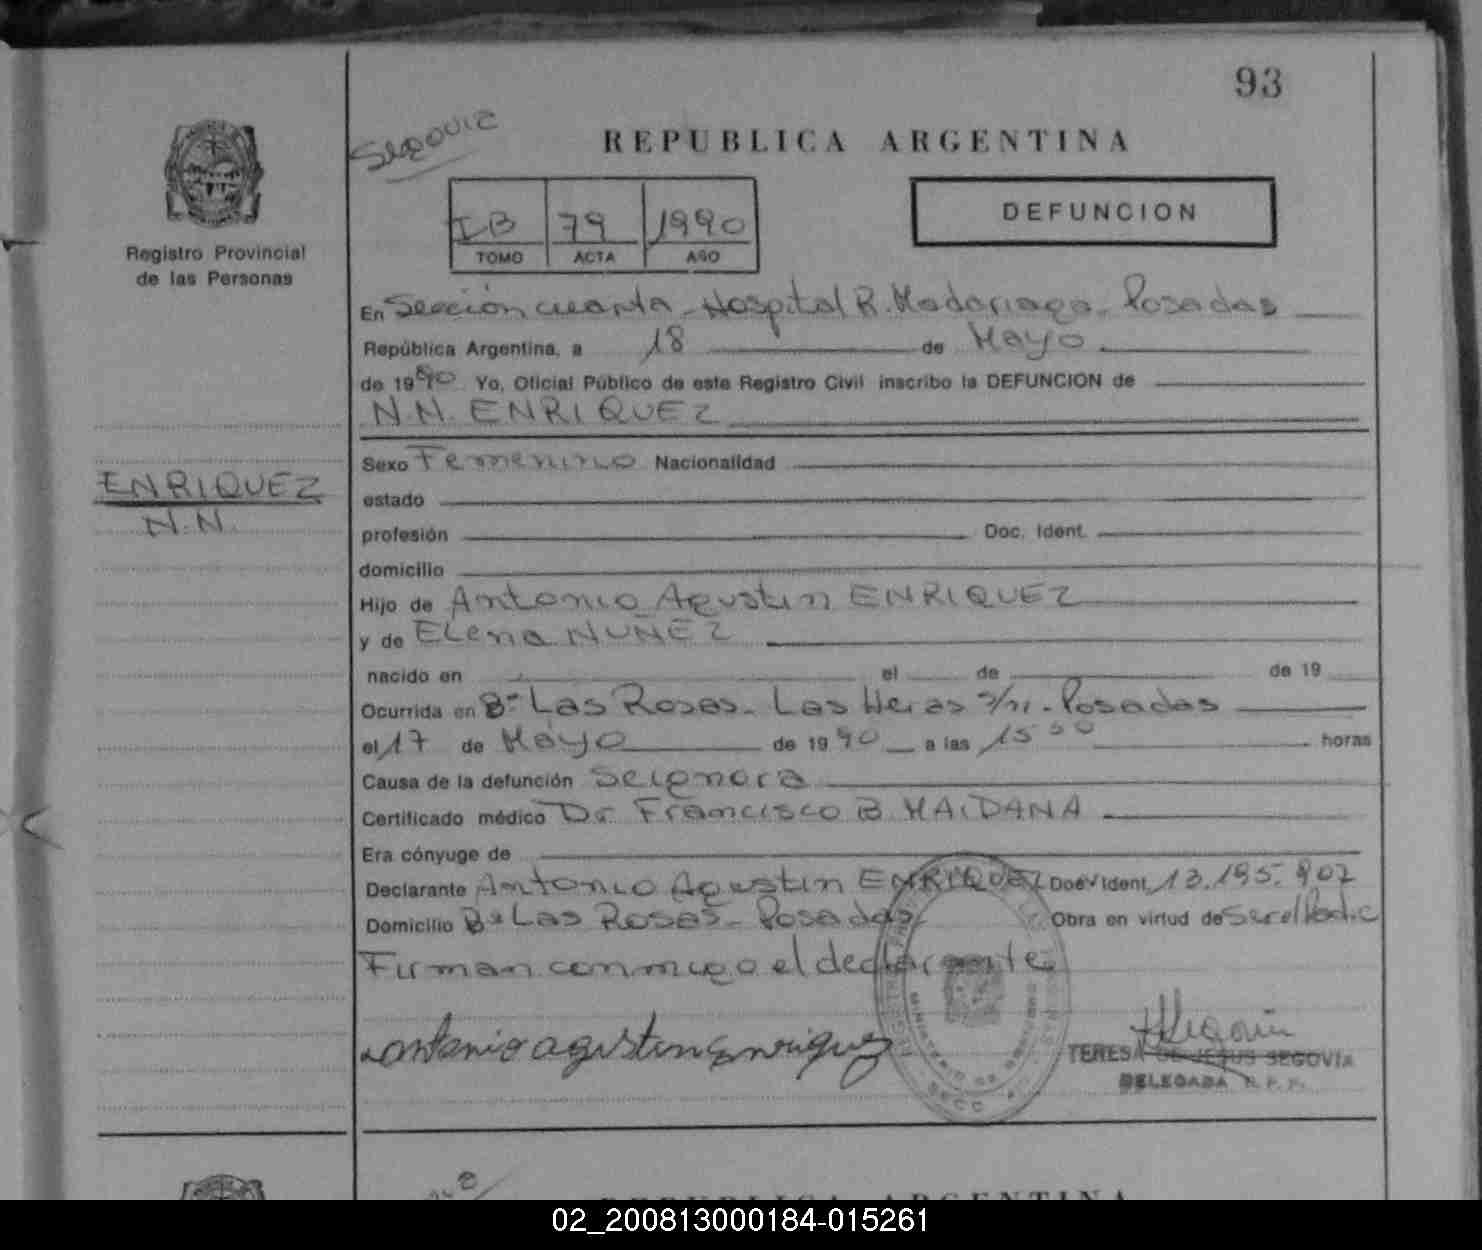 93
Segovia
REPUBLICA ARGENTINA
DEFUNCION
IB 79 1990
TOMO ACTA AÑO
Registro Provincial
de las Personas
En Sección cuarta - Hospital R. Madariaga - Posadas
República Argentina, a 18 de Mayo
de 1990 Yo, Oficial Público de este Registro Civil inscribo la DEFUNCION de
N.N. ENRIQUEZ
Sexo Femenino Nacionalidad
ENRIQUEZ
N.N.
estado
profesión Doc. Ident.
domicilio
Hijo de Antonio Agustin ENRIQUEZ
y de Elena NUÑEZ
nacido en el de de 19
Ocurrida en B° Las Rosas - Las Heras s/n - Posadas
el 17 de Mayo de 1990 a las 15 horas
Causa de la defunción Se ignora
Certificado médico Dr Francisco B. MAIDANA
Era cónyuge de
Declarante Antonio Agustin ENRIQUEZ Doc. Ident. 13.195.902
Domicilio B° Las Rosas - Posadas Obra en virtud de Ser el
Firman conmigo el declarante
antonio agustin Enriquez
TERESA DE JESUS SEGOVIA
DELEGADA R. P. P.
REPUBLICA ARGENTINA
02_200813000184-015261